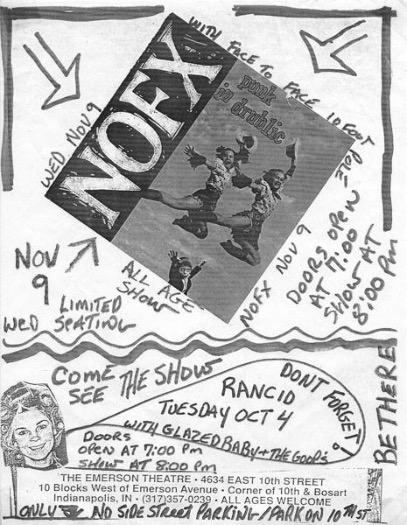 WITH FACE TO FACE 10 FOOT POLE
WED NOV 9
NOFX
punk
in drublic
NOV
9
WED
LIMITED
SEATING
ALL AGE
SHOW
NOFX NOV 9
DOORS OPEN
AT 7:00
SHOW AT
8:00 PM
COME
SEE THE SHOW
DON'T FORGET!
RANCID
TUESDAY OCT 4
WITH GLAZED BABY + THE GOOPS
DOORS
OPEN AT 7:00 PM
SHOW AT 8:00 PM
BE THERE
THE EMERSON THEATRE • 4634 EAST 10th STREET
10 Blocks West of Emerson Avenue • Corner of 10th & Bosart
Indianapolis, IN • (317)357-0239 • ALL AGES WELCOME
ONLY NO SIDE STREET PARKING/PARK ON 10TH ST